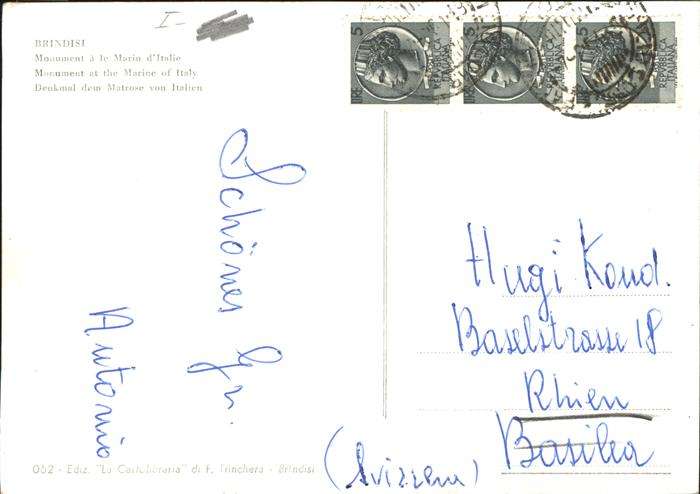 I-
BRINDISI
Monument à le Marin d'Italie
Monument at the Marine of Italy
Denkmal dem Matrose von Italien
5
REPUBBLICA
ITALIANA
LIRE
5
REPUBBLICA
ITALIANA
LIRE
5
REPUBBLICA
ITALIANA
LIRE
Schönes Gr.
Antonio
Hugi Kond.
Baselstrasse 18
Rhien
Basilea
(Svizzera)
062 - Ediz. "La Cartolibraria" di F. Trinchera - Brindisi